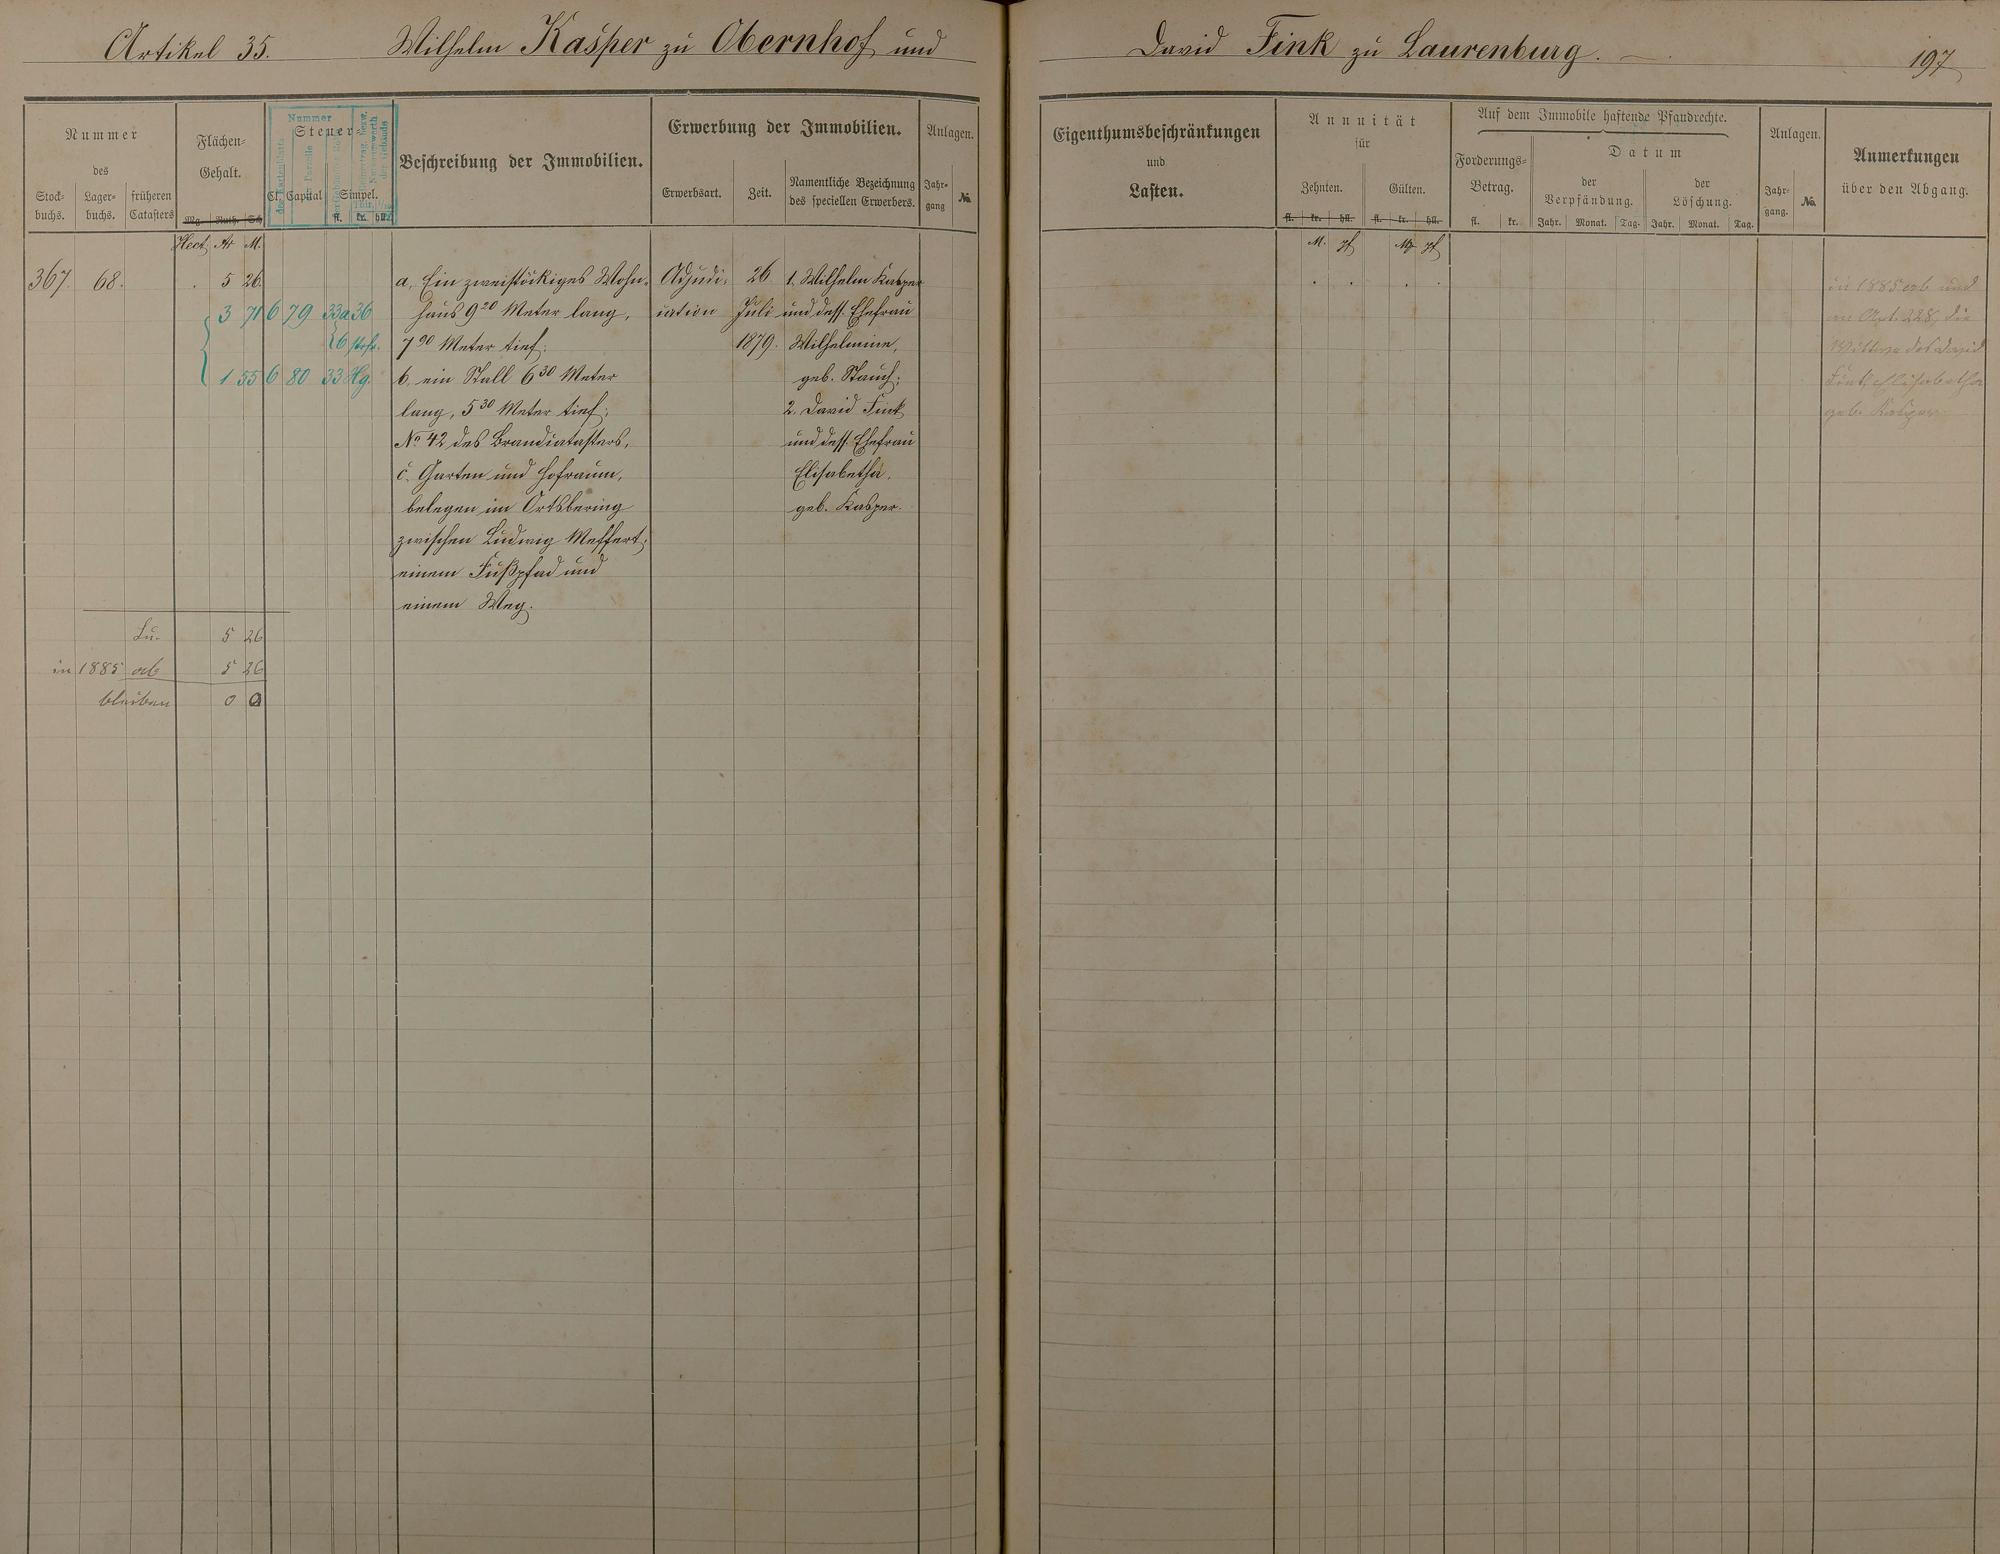 Artikel 35. Wilhelm Kasper zu Obernhof und David Fink zu Laurenburg. 197
Nummer
des
Stock-
buchs.
Lager-
buchs.
früheren
Catasters
Flächen-
Gehalt.
Mg. Ruth. Sch
Hect Ar M.
Nummer
Steuer
Cl. Capital Simpel.
fl. kr. hll.
Beschreibung der Immobilien.
Erwerbung der Immobilien.
Erwerbsart. Zeit.
Namentliche Bezeichnung
des speciellen Erwerbers.
Anlagen.
Jahr-
gang
No.
Eigenthumsbeschränkungen
und
Lasten.
Annuität
für
Zehnten. Gülten.
fl. kr. hll. fl. kr. hll.
M. pf M. pf
Auf dem Immobile haftende Pfandrechte.
Forderungs-
Betrag.
fl. kr.
Datum
der
Verpfändung.
Jahr. Monat. Tag.
der
Löschung.
Jahr. Monat. Tag.
Anlagen.
Jahr-
gang.
No.
Anmerkungen
über den Abgang.
367. 68. . 5 26
3 71 6 79 33a 36
1 55 6 80 33 Hg.
a, Ein zweistöckiges Wohn-
haus 9 20 Meter lang,
7 90 Meter tief;
b, ein Stall 6 30 Meter
lang, 5 30 Meter tief;
No. 42 des Brandcatasters,
c. Garten und Hofraum,
belegen im Ortsbering
zwischen Ludwig Meffert,
einem Fußpfad und
einem Weg.
Adjudi-
cation
26
Juli
1879.
1. Wilhelm Kasper
und dess. Ehefrau
Wilhelmine,
geb. Stauch;
2. David Fink
und dess. Ehefrau
Elisabetha,
geb. Kasper.
in 1885 ab und
an Art. 228, die
Wittwe des David
Fink, Elisabetha
geb. Kasper
Su. 5 26
in 1885 ab 5 26
bleiben 0 0